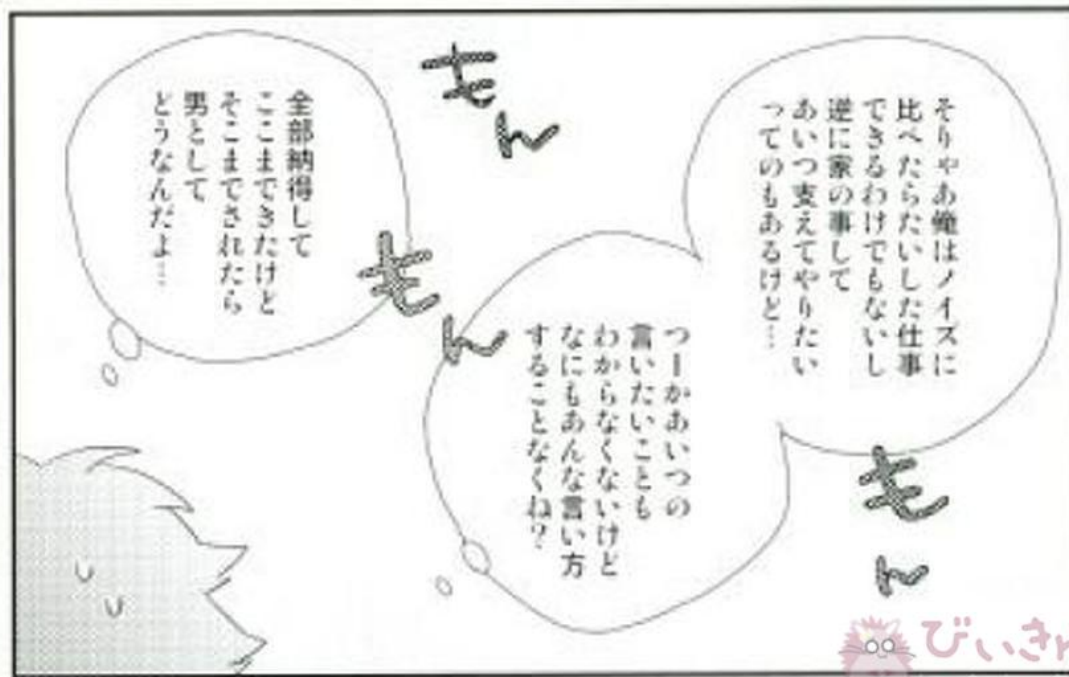 そりゃあ俺はノイズに
比べたらたいした仕事
できるわけでもないし
逆に家の事して
あいつ支えてやりたい
ってのもあるけど…
もん
つーかあいつの
言いたいことも
わからなくないけど
なにもあんな言い方
することなくね?
もん
もん
全部納得して
ここまできたけど
そこまでされたら
男として
どうなんだよ…
びぃきゅ